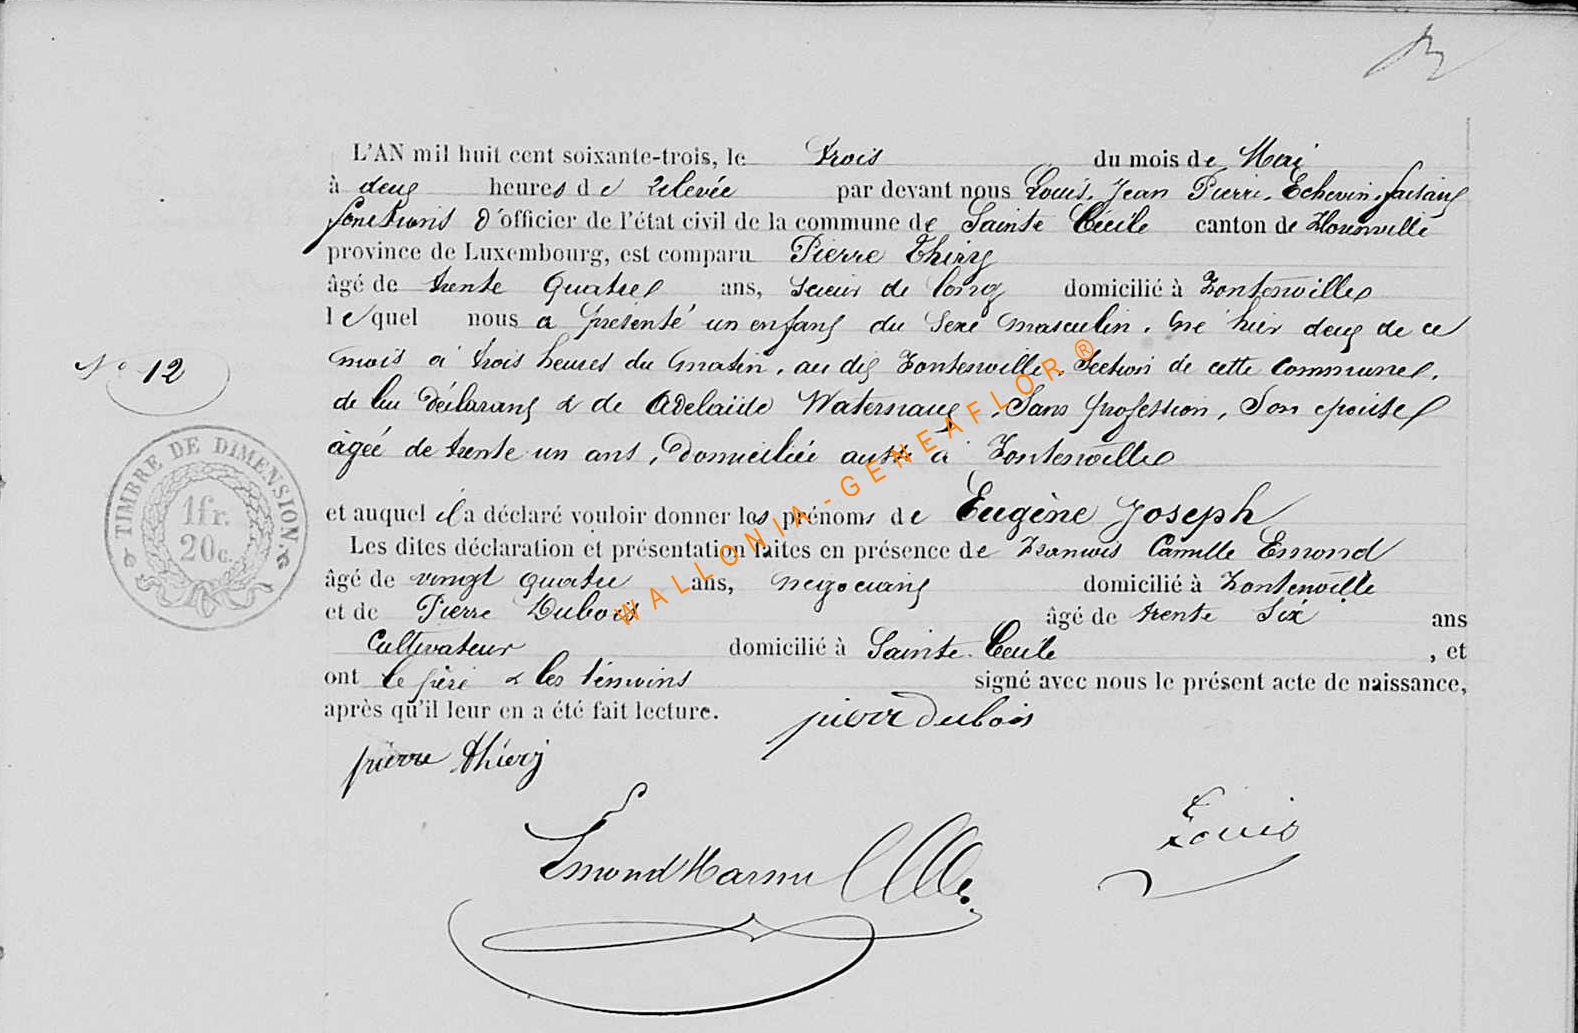 L'AN mil huit cent soixante-trois, le trois du mois de Mai
à deux heures de relevée par devant nous Louis, Jean Pierre, Echevin, faisant
fonctions d'officier de l'état civil de la commune de Sainte Cécile canton de Florenville
province de Luxembourg, est comparu Pierre Thiry
âgé de trente quatre ans, scieur de long domicilié à Fontenoille
lequel nous a présenté un enfant du sexe masculin, né hier deux de ce
N° 12
mois à trois heures du matin, au dit Fontenoille, section de cette commune,
de lui déclarant & de Adelaïde Waternaux, sans profession, son épouse
âgée de trente un ans, domiciliée aussi à Fontenoille
et auquel il a déclaré vouloir donner les prénoms de Eugène Joseph
Les dites déclaration et présentation faites en présence de François Camille Emond
âgé de vingt quatre ans, négociant domicilié à Fontenoille
et de Pierre Dubois âgé de trente six ans
Cultivateur domicilié à Sainte Cécile, et
ont le père & les témoins signé avec nous le présent acte de naissance,
après qu'il leur en a été fait lecture.
pierre dubois
pierre thiery
Emond
Louis
TIMBRE DE DIMENSION
1fr.
20c.
WALLONIA-GENEAFLOR®